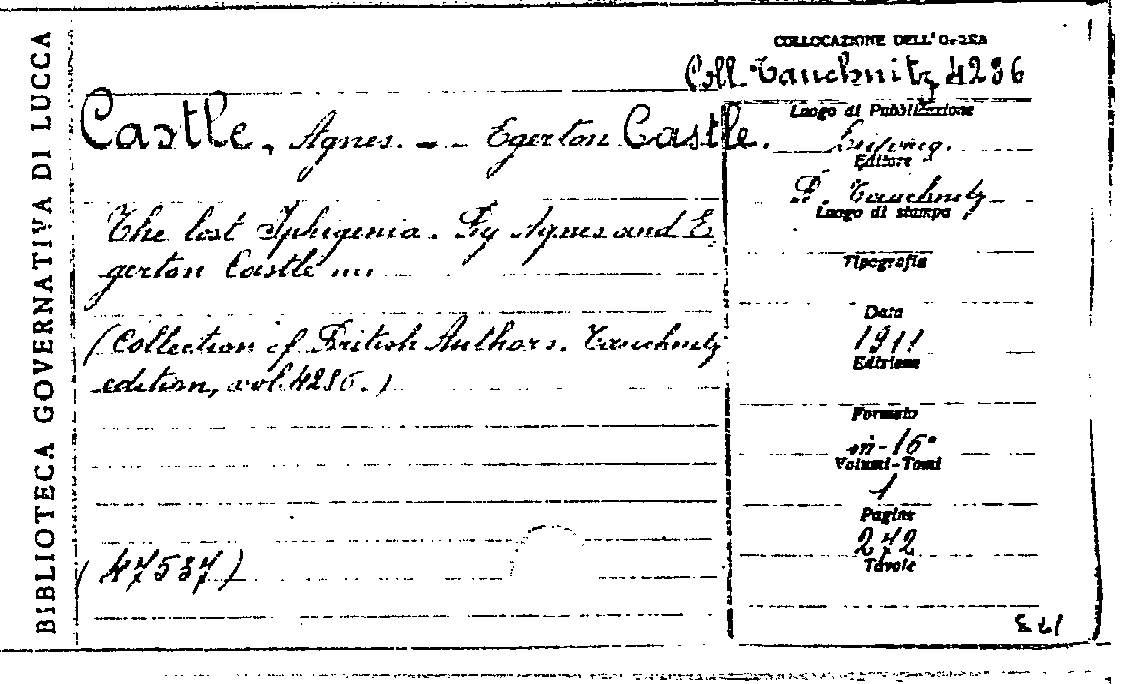 BIBLIOTECA GOVERNATIVA DI LUCCA
COLLOCAZIONE DELL'OPERA
Coll. Tauchnitz 4286
Castle, Agnes. - - Egerton Castle.
The lost Iphigenia. By Agnes and E
gerton Castle ....
(Collection of British Authors. Tauchnitz
edition, vol. 4286.)
(47537)
Luogo di Pubblicazione
Leipzig.
Editore
B. Tauchnitz
Luogo di stampa
Tipografia
Data
1911
Edizione
Formato
in-16°
Volumi-Tomi
1
Pagine
272
Tavole